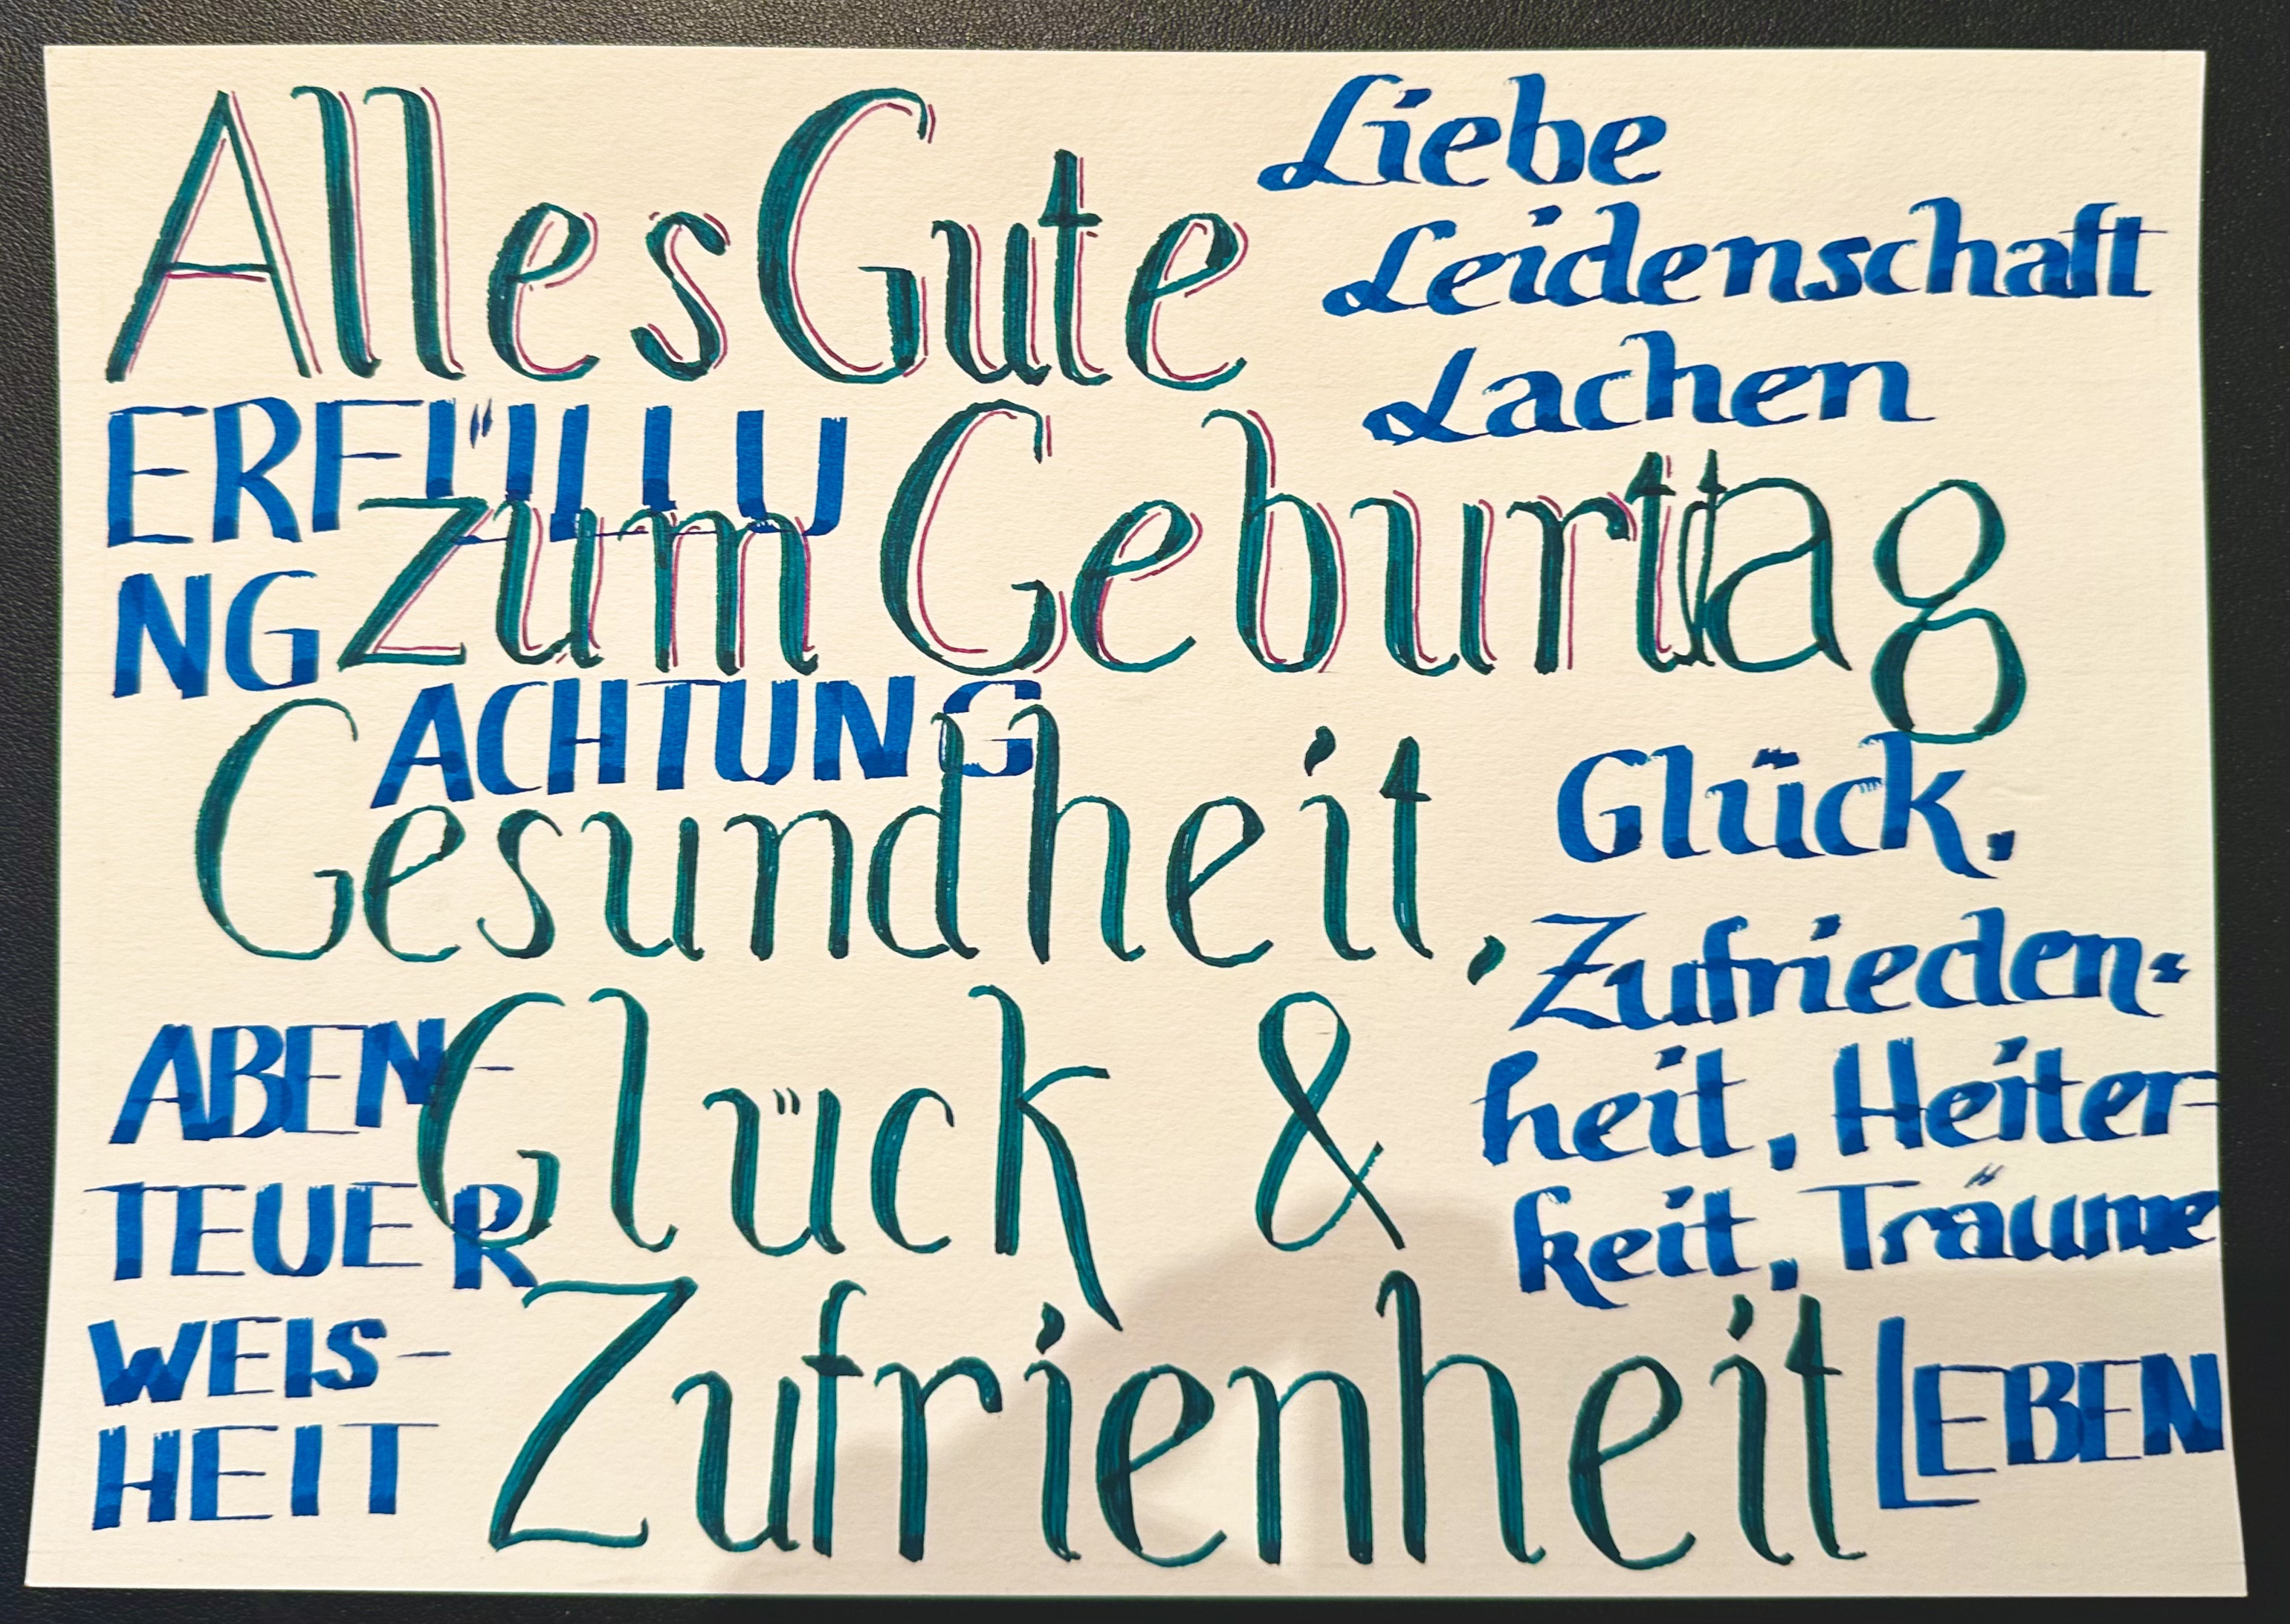 Alles Gute
zum Geburttag
Gesundheit,
Glück &
Zufrienheit
Liebe
Leidenschaft
Lachen
ERFÜLLU
NG
ACHTUNG
Glück,
Zufrieden-
heit, Heiter-
keit, Träume
ABEN-
TEUER
WEIS-
HEIT
LEBEN